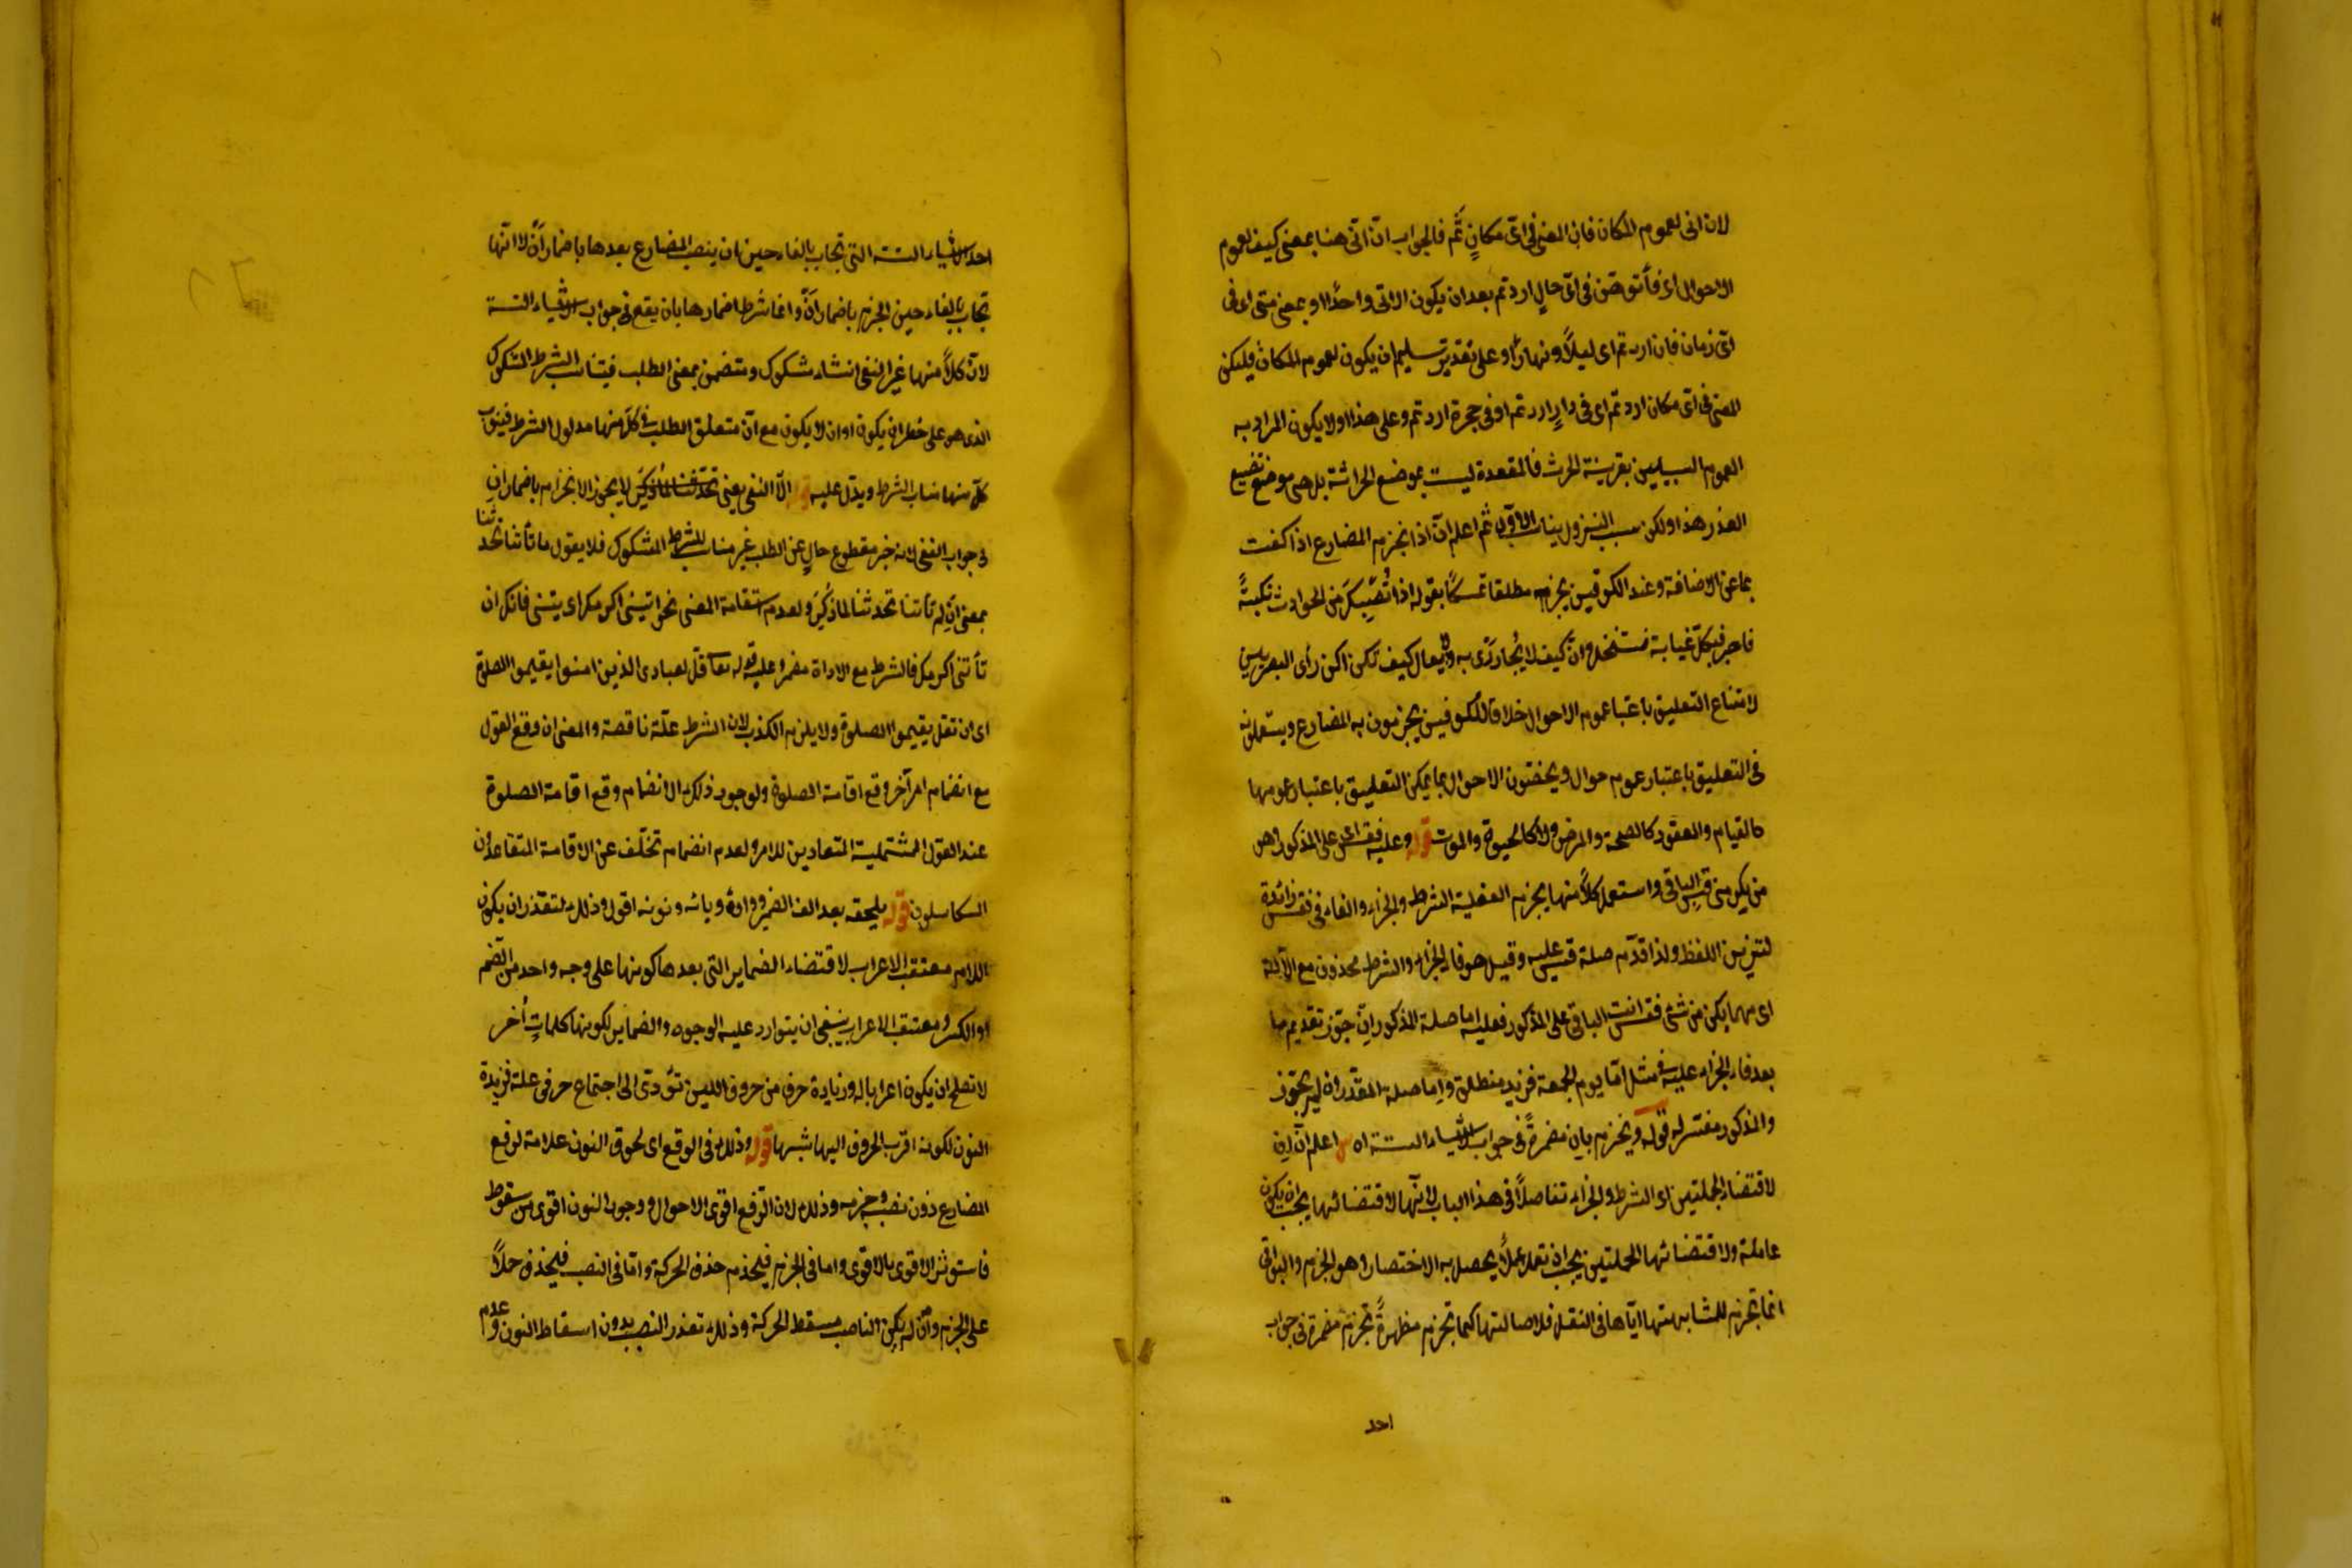 لان انى لعموم المكان فان المعنى فى اىّ مكانٍ ثَم فالجواب ان انى هنا بمعنى كيف لعموم
الاحوال اى فأتوهن فى اىّ حالٍ اردتم بعد ان يكون الماتى واحدًا او بمعنى متى اى فى
اىّ زمان فان اردتم اى ليلاً ونهارًا وعلى تقدير تسليم ان يكون لعموم المكان فليكن
المعنى فى اىّ مكان اردتم اى فى دارٍ اردتم او فى حجرة اردتم وعلى هذا اولا يكون المراد به
العموم السبيلين بقرينة الحرث فالمقعدة ليست بموضع الحراثة بل هى موضع تضييع
العذر هذا ولكن سبب النزول يناسب الاول ثم اعلم انّ اذا ينجزم المضارع اذا كفت
بما عن الاضافة وعند الكوفيين يجزم مطلقا تمسكًا بقوله اذا تُصِبْكَ من الحوادث نكبةً
فاصبر فكلّ غيابة وانّ كيف لا يُجازى به ولا يقال كيف تكن اكن رأى البصريين
لامتناع التعليق باعتبار عموم الاحوال خلافا للكوفيين يجزمون به المضارع ويستعملونه
فى التعليق باعتبار عموم حوال ويخصّون الاحوال بما يمكن التعليق باعتبار عمومها
كالقيام والعقود كالصحة والمرض ولا كالحيوة والموت قوله وعليه فقس اى على المذكور وهو
من يكرمنى قس الباقى واستعمل كلاً منها بجزم الفعلية الشرط والجزاء والفاء فى فقس زائدة
لتزيين اللفظ ولذا قدّم صلة قس عليه وقيل هو فاء الجزاء والشرط محذوف مع الآلة
اى مهما يكن من شئ فقس انت الباقى على المذكور فعليه اما صلة المذكور ان جوّز تقديم ما
بعد فاء الجزاء عليه فى مثل امّا يوم الجمعة فزيد منطلق واما صلة المقدّر ان لم يجوّز
والمذكور مفسّر له قوله وينجزم بان مضمرةً فى جواب الاشياء الستة اه اعلم انّ ان
لاقتضاء الجملتين اى الشرط والجزاء تفاصلاً فى هذا الباب لانّها لاقتضائها يجب ان يكون
عاملة ولاقتضائها الجملتين يجب ان تعمل عملاً يحصل به الاختصار وهو الجزم والبواقى
انما تجزم للمشابهتها ايّاها فى النقل فلاصالتها كما تجزم مظهرةً تجزم مضمرة فى جواب
احد
احد الاشياء الستة التى تجاب بالفاء حين ان ينصب المضارع بعدها باضمار أن لا انّها
تجاب بالفاء حين الجزم باضمار ان وانما شرط اضمارها بان يقع فى جواب الاشياء الستة
لانّ كلاً منها غير النفى انشاء شكوك ومتضمن بمعنى الطلب فيناسب الشرط المشكوك
الذى هو على خطر ان يكون او ان لا يكون مع انّ متعلق الطلب فى كلّ منها مدلول الشرط فينوب
كلّ منها مناب الشرط ويدّل عليه قوله الاّ النفى يعنى لا يجوز الانجزام باضمار ان
فى جواب النفى لانه خبر مقطوع خالٍ عن الطلب غير مناسب للشرط المشكوك فلا يقول ما تأتنا تحدثنا
بمعنى ان لم تأتنا تحدثنا لما ذكر ولعدم استقامة المعنى نحو ائتينى اكرمك اى ائتنى فانك ان
تأتنى اكرمك فالشرط مع الاداة مضمر وعليه قوله تعا قل لعبادى الذين امنوا يقيموا الصلوة
اى ان تقل يقيموا الصلوة ولا يلزم الكذب لان الشرط علّة ناقصة والمعنى ان وقع القول
مع انضمام امر آخر وقع اقامة الصلوة ولوجود ذلك الانضمام وقع اقامة الصلوة
عند القول المشتملية المتعادين للامر ولعدم انضمام تخلّف عن الاقامة المتقاعدون
السكاسلون قوله يلحقه بعد الف الضمير وواوه ويائه ونونه اقول وذلك لتعذر ان يكون
اللام معتقب الاعراب لاقتضاء الضماير التى بعدها كونها على وجه واحد من الضم
او الكسر ومعتقب الاعراب ينبغى ان يتوارد عليه الوجوه والضماير لكونها كلماتٍ أُخر
لا تصلح ان يكون اعرابا له وزيادة حرف من حروف اللين تؤدّى الى اجتماع حرفى علة فزيدة
النون لكونه اقرب الحروف اليها شبها قوله وذلك فى الرفع اى لحوق النون علامة لرفع
المضارع دون نصبه وجزمه وذلك لان الرّفع اقوى الاحوال ووجود النون اقوى من سقوط
فاستوثر الاقوى بالاقوى واما فى الجزم فيحذف حذف الحركة وامّا فى النصب فيحذف حملاً
على الجزم وان لم يكن الناصب مسقط الحركة وذلك تعذر النصب بدون اسقاط النون وعدم